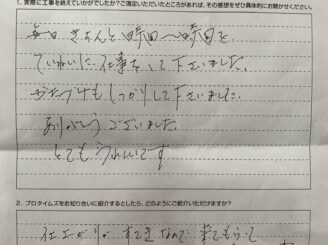 1. 実際に工事を終えていかがでしたか?ご満足いただいたところがあれば、その感想をぜひ具体的にお聞かせください。
毎日 きちんと 時間〜時間を
ていねいに 仕事をして下さいました。
かたづけもしっかりして下さいました。
ありがとうございました。
とてもうれしいです
2. プロタイムズをお知り合いに紹介するとしたら、どのようにご紹介いただけますか?
仕上がりが すてきなので 来てもらって